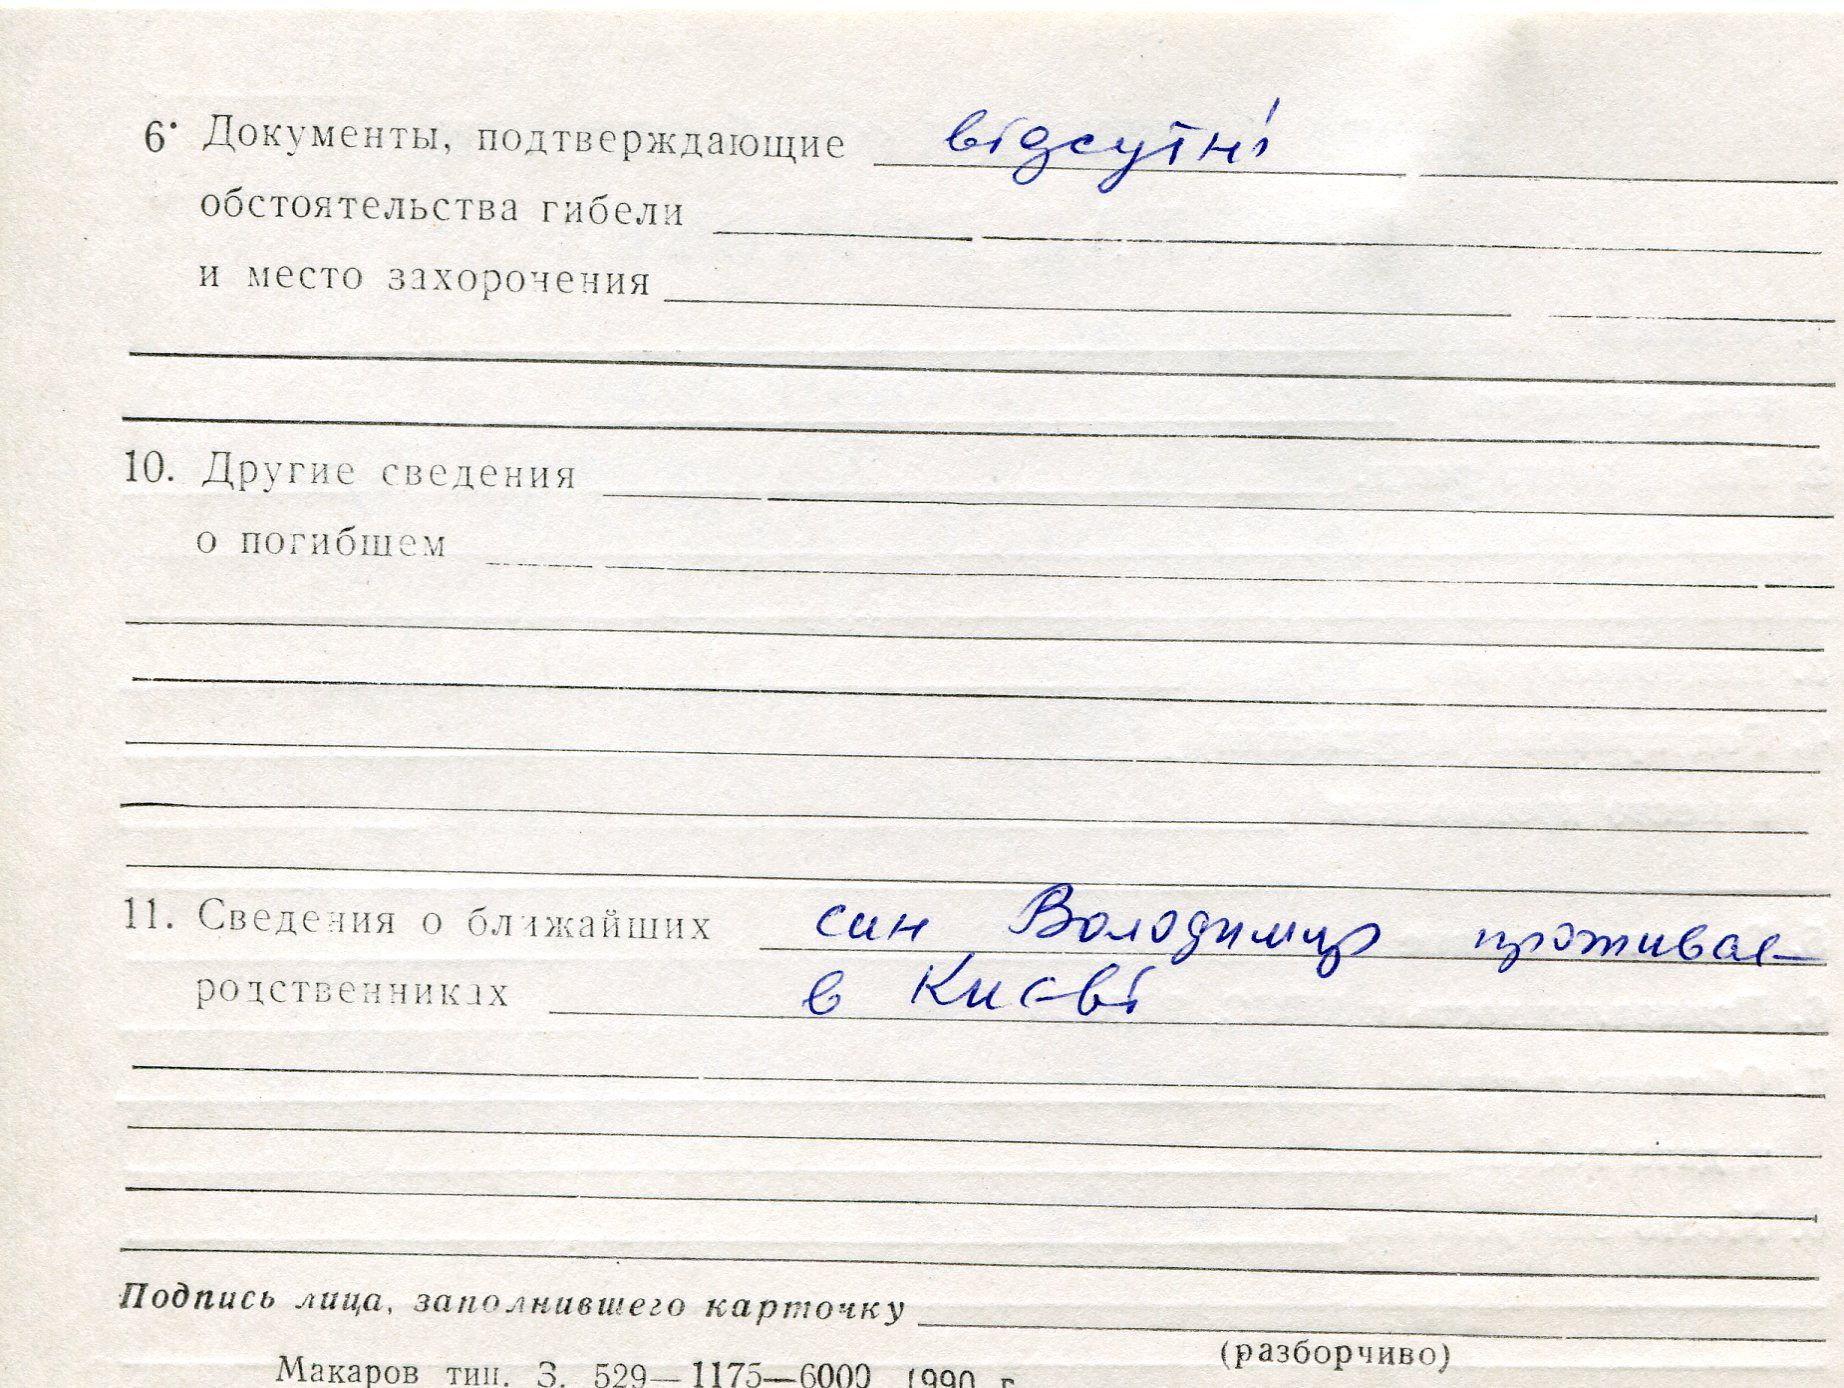 6. Документы, подтверждающие відсутні
обстоятельства гибели
и место захорочения
10. Другие сведения
о погибшем
11. Сведения о ближайших син Володимир проживає
родственниках в Києві
Подпись лица, заполнившего карточку
(разборчиво)
Макаров тип. З. 529—1175—6000 1990 г.